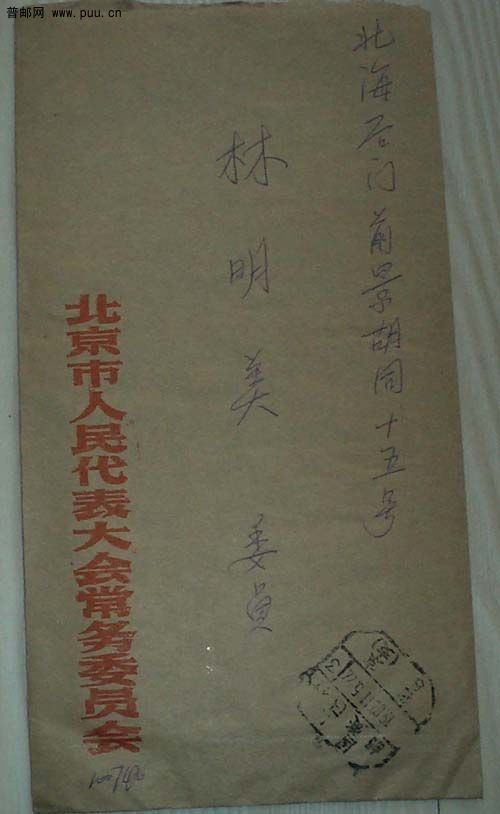 普邮网 www.puu.cn
北海后门前景胡同十五号
林明美 委员
北京市人民代表大会常务委员会